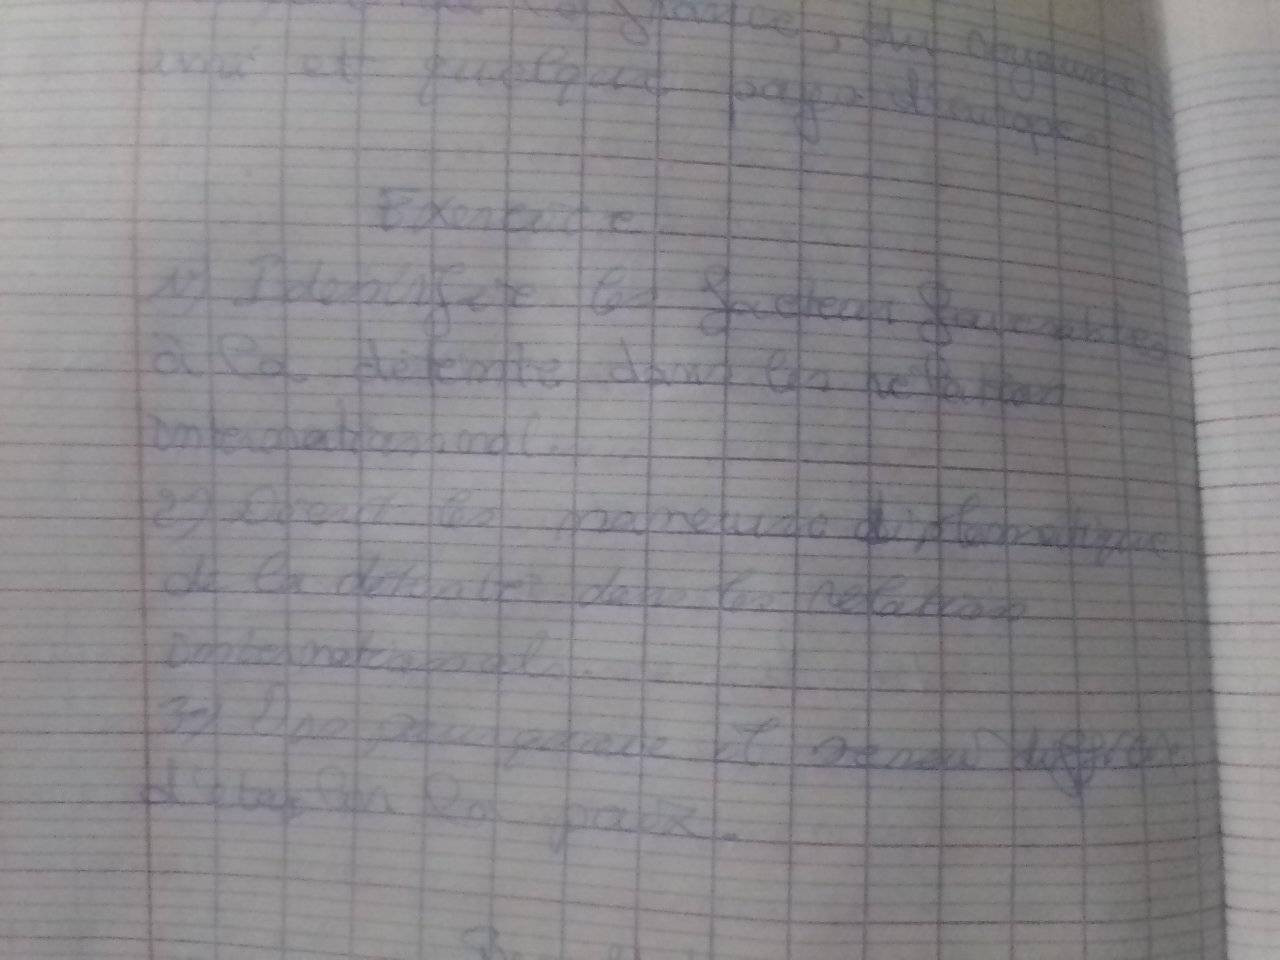 la France, du royaume
uni et quelques pays d'europe.
Exercice
1°) Identifier les facteurs favorables
à la détente dans les relation
international.
2°) Decrit les diplomatique
de la detente dans les relation
international.
3°) il difficile
d'etablir la paix.